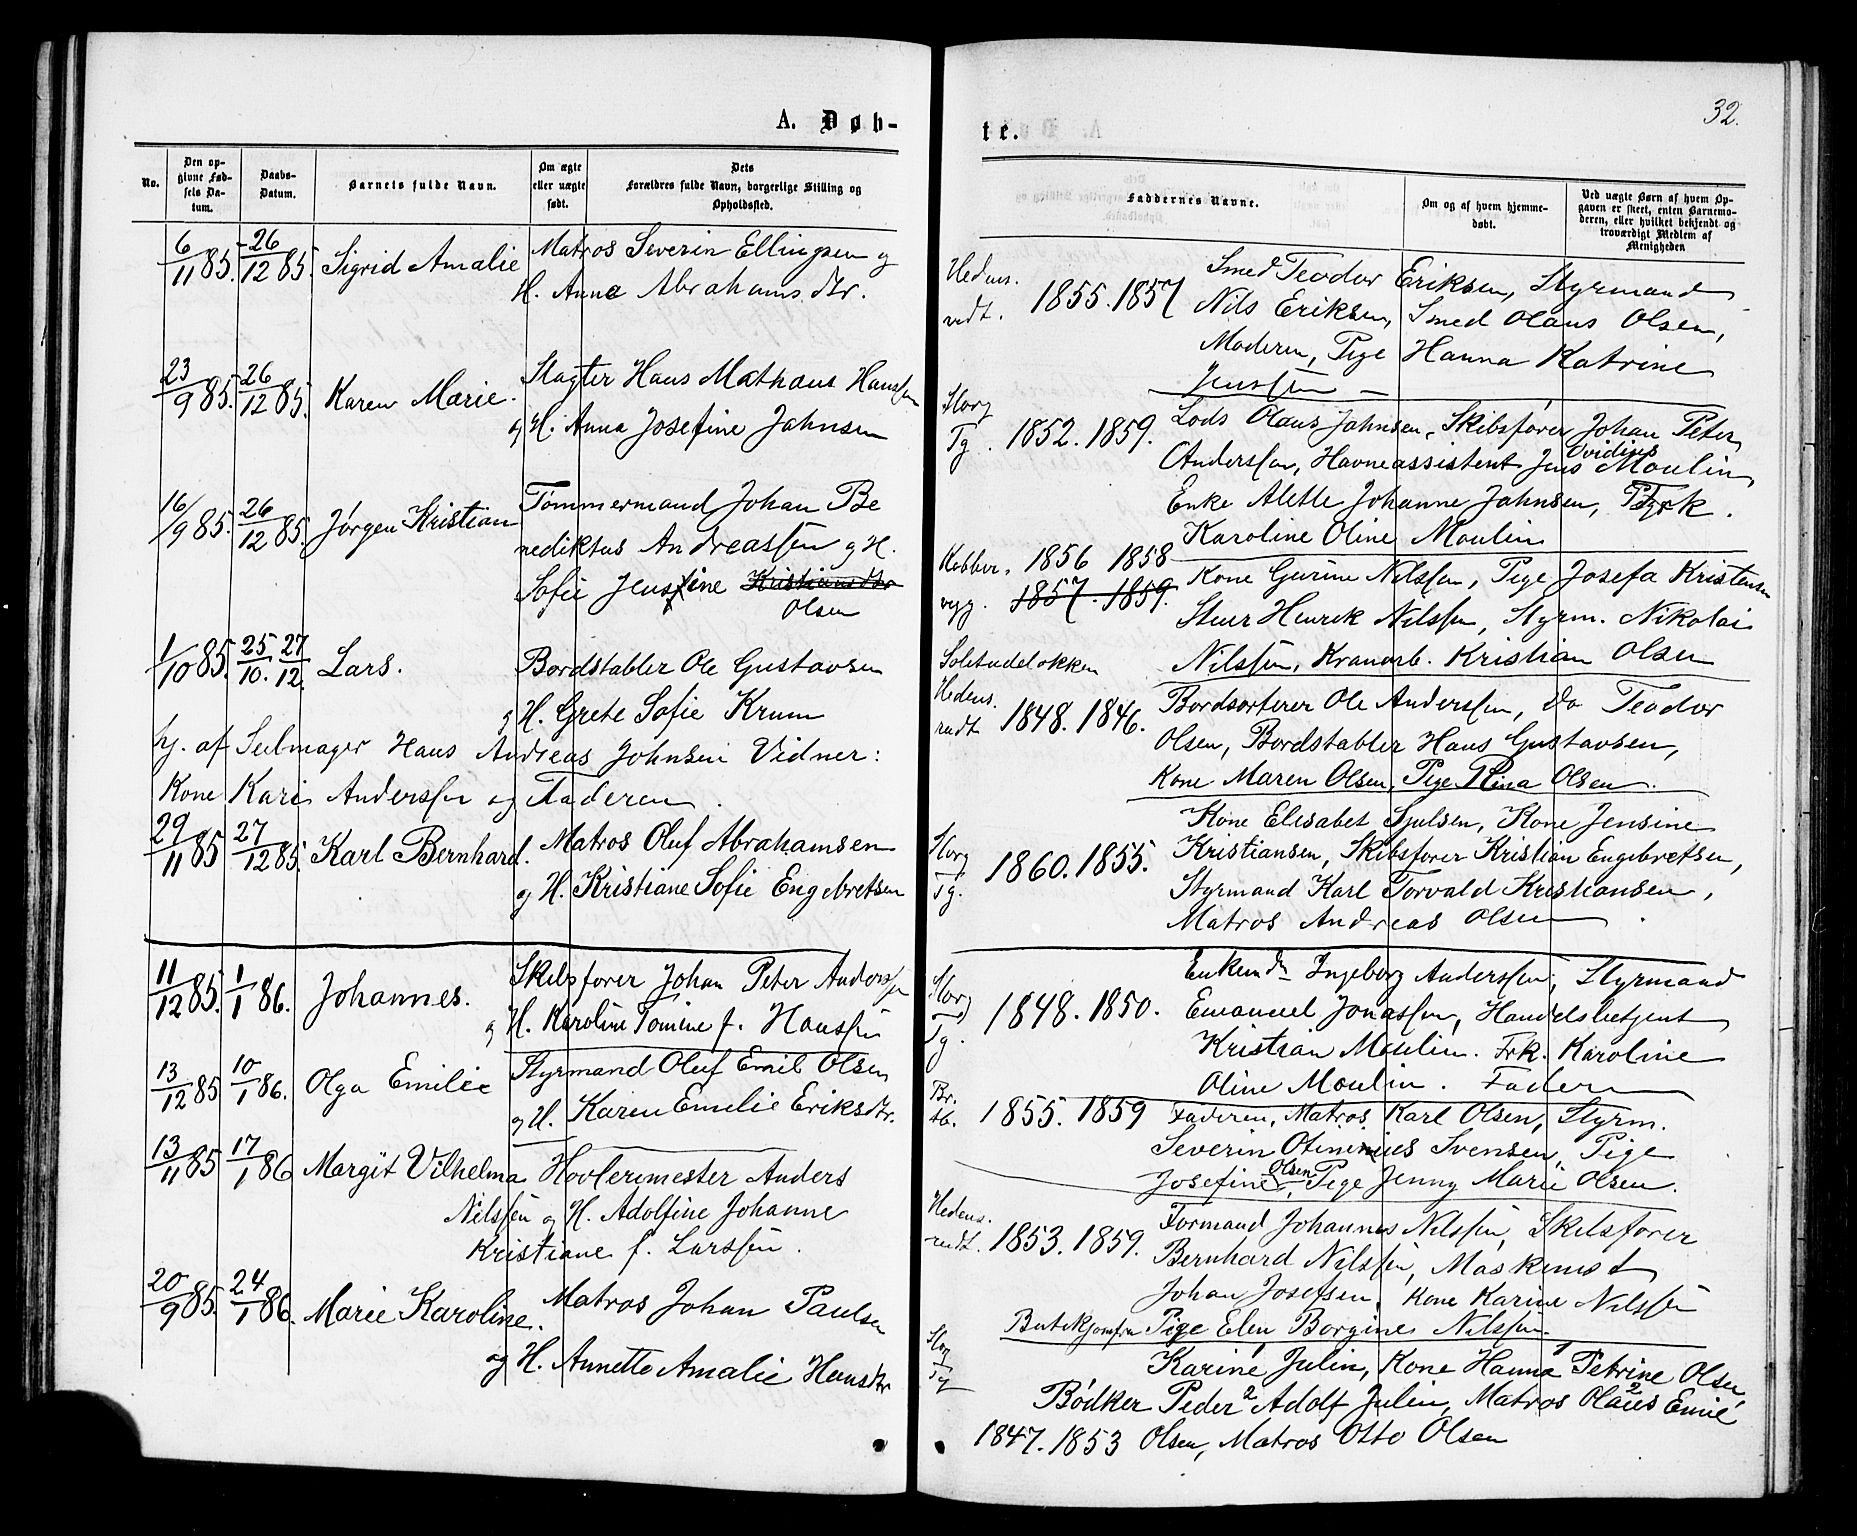 A. Døb-
No.
Den op-
givne Fød-
sels Da-
tum.
Daabs-
Datum.
Barnets fulde Navn.
Om ægte
eller uægte
født.
Dets
Forældres fulde Navn, borgerlige Stilling og
Opholdssted.
6/11 85. 26/12 85. Sigrid Amalie Matros Severin Ellingsen og
H. Anne Abrahamsdtr.
23/9 85. 26/12 85. Karen Marie. Slagter Hans Mathæus Hanssen
og H. Anna Josefine Jahnsen
16/9 85. 26/12 85. Jørgen Kristian Tømmermand Johan Be
nediktus Andreassen og H.
Sofie Jensine Kristiansdtr
Olsen
1/10 85. 25/10. 27/12. Lars. Bordstabler Ole Gustavsen
og H. Grete Sofie Krum
hj. af Seilmager Hans Andreas Johnsen Vidner:
Kone Kari Anderssen og Faderen.
29/11 85 27/12 85. Karl Bernhard. Matros Oluf Abrahamsen
og H. Kristiane Sofie Engebretsen
11/12 85. 1/1 86. Johannes. Skibsfører Johan Peter Anderssen
og H. Karoline Tomine f. Hanssen
13/12 85 10/1 86. Olga Emilie Styrmand Oluf Emil Olsen
og H. Karen Emelie Eriksdtr.
13/11 85 17/1 86 Margit Vilhelma Høvlerimester Anders
Nilssen og H. Adolfine Johanne
Kristiane f. Larssen.
20/9 85. 24/1 86. Marie Karoline. Matros Johan Paulsen
og H. Annette Amalie Hansdtr
te.
32.
Faddernes Navne.
Om og af hvem hjemme-
døbt.
Ved uægte Børn af hvem Op-
gaven er skeet, enten Barnemo-
deren, eller hvilket bekjendt og
troværdigt Medlem af
Menigheden
Hedens.
rudt. 1855. 1857 Smed Teodor Eriksen, Styrmand
Nils Eriksen, Smed Olaus Olsen,
Moderen, Pige Hanna Katrine
Jenssen
Storg
Tg. 1852. 1859. Lods Olaus Jahnsen, Skibsfører Johan Peter
Anderssen, Havneassistent Jens Ovidius Moulin,
Enke Alette Johanne Jahnsen, Frk.
Karoline Oline Moulin
Kobber.
vigg. 1856 1858
1857. 1859. Kone Gurine Nilssen, Pige Josefa Kristensen
Stuer Henrik Nilssen, Styrm. Nikolai
Nilssen, Kranarb. Kristian Olsen
Solstadeløkken
Hedens.
rudt 1848. 1846. Bordsorterer Ole Anderssen, do Teodor
Olsen, Bordstabler Hans Gustavsen,
Kone Maren Olsen, Pige Olina Olsen.
Storg
Tg. 1860. 1855. Kone Elisabet Sjulsen, Kone Jensine
Kristiansen, Skibsfører Kristian Engebretsen,
Styrmand Karl Torvald Kristiansen,
Matros Andreas Olsen
Storg
Tg. 1848. 1850. Enkemd Ingeborg Anderssen, Styrmand
Emanuel Jonassen, Handelsbetjent
Kristian Moulin. Frk. Karoline
Oline Moulin. Fader
Br.
tb. 1855. 1859 Faderen, Matros Karl Olsen, Styrm.
Severin Otinius Svensen, Pige
Josefine Olsen, Pige Jenny Marie Olsen.
Hedens.
rudt. 1853. 1859. Formand Johannes Nilssen, Skibsfører
Bernhard Nilssen, Maskinist
Johan Josefsen, Kone Karine Nilssen
Butikjomfru Pige Elen Borgine Nilssen.
Storg
Tg Karine Julin, Kone Hanna Petrine Olsen
Bødker Peder Adolf Julin, Matros Olaus Emil
1847. 1853 Olsen, Matros Otto Olsen